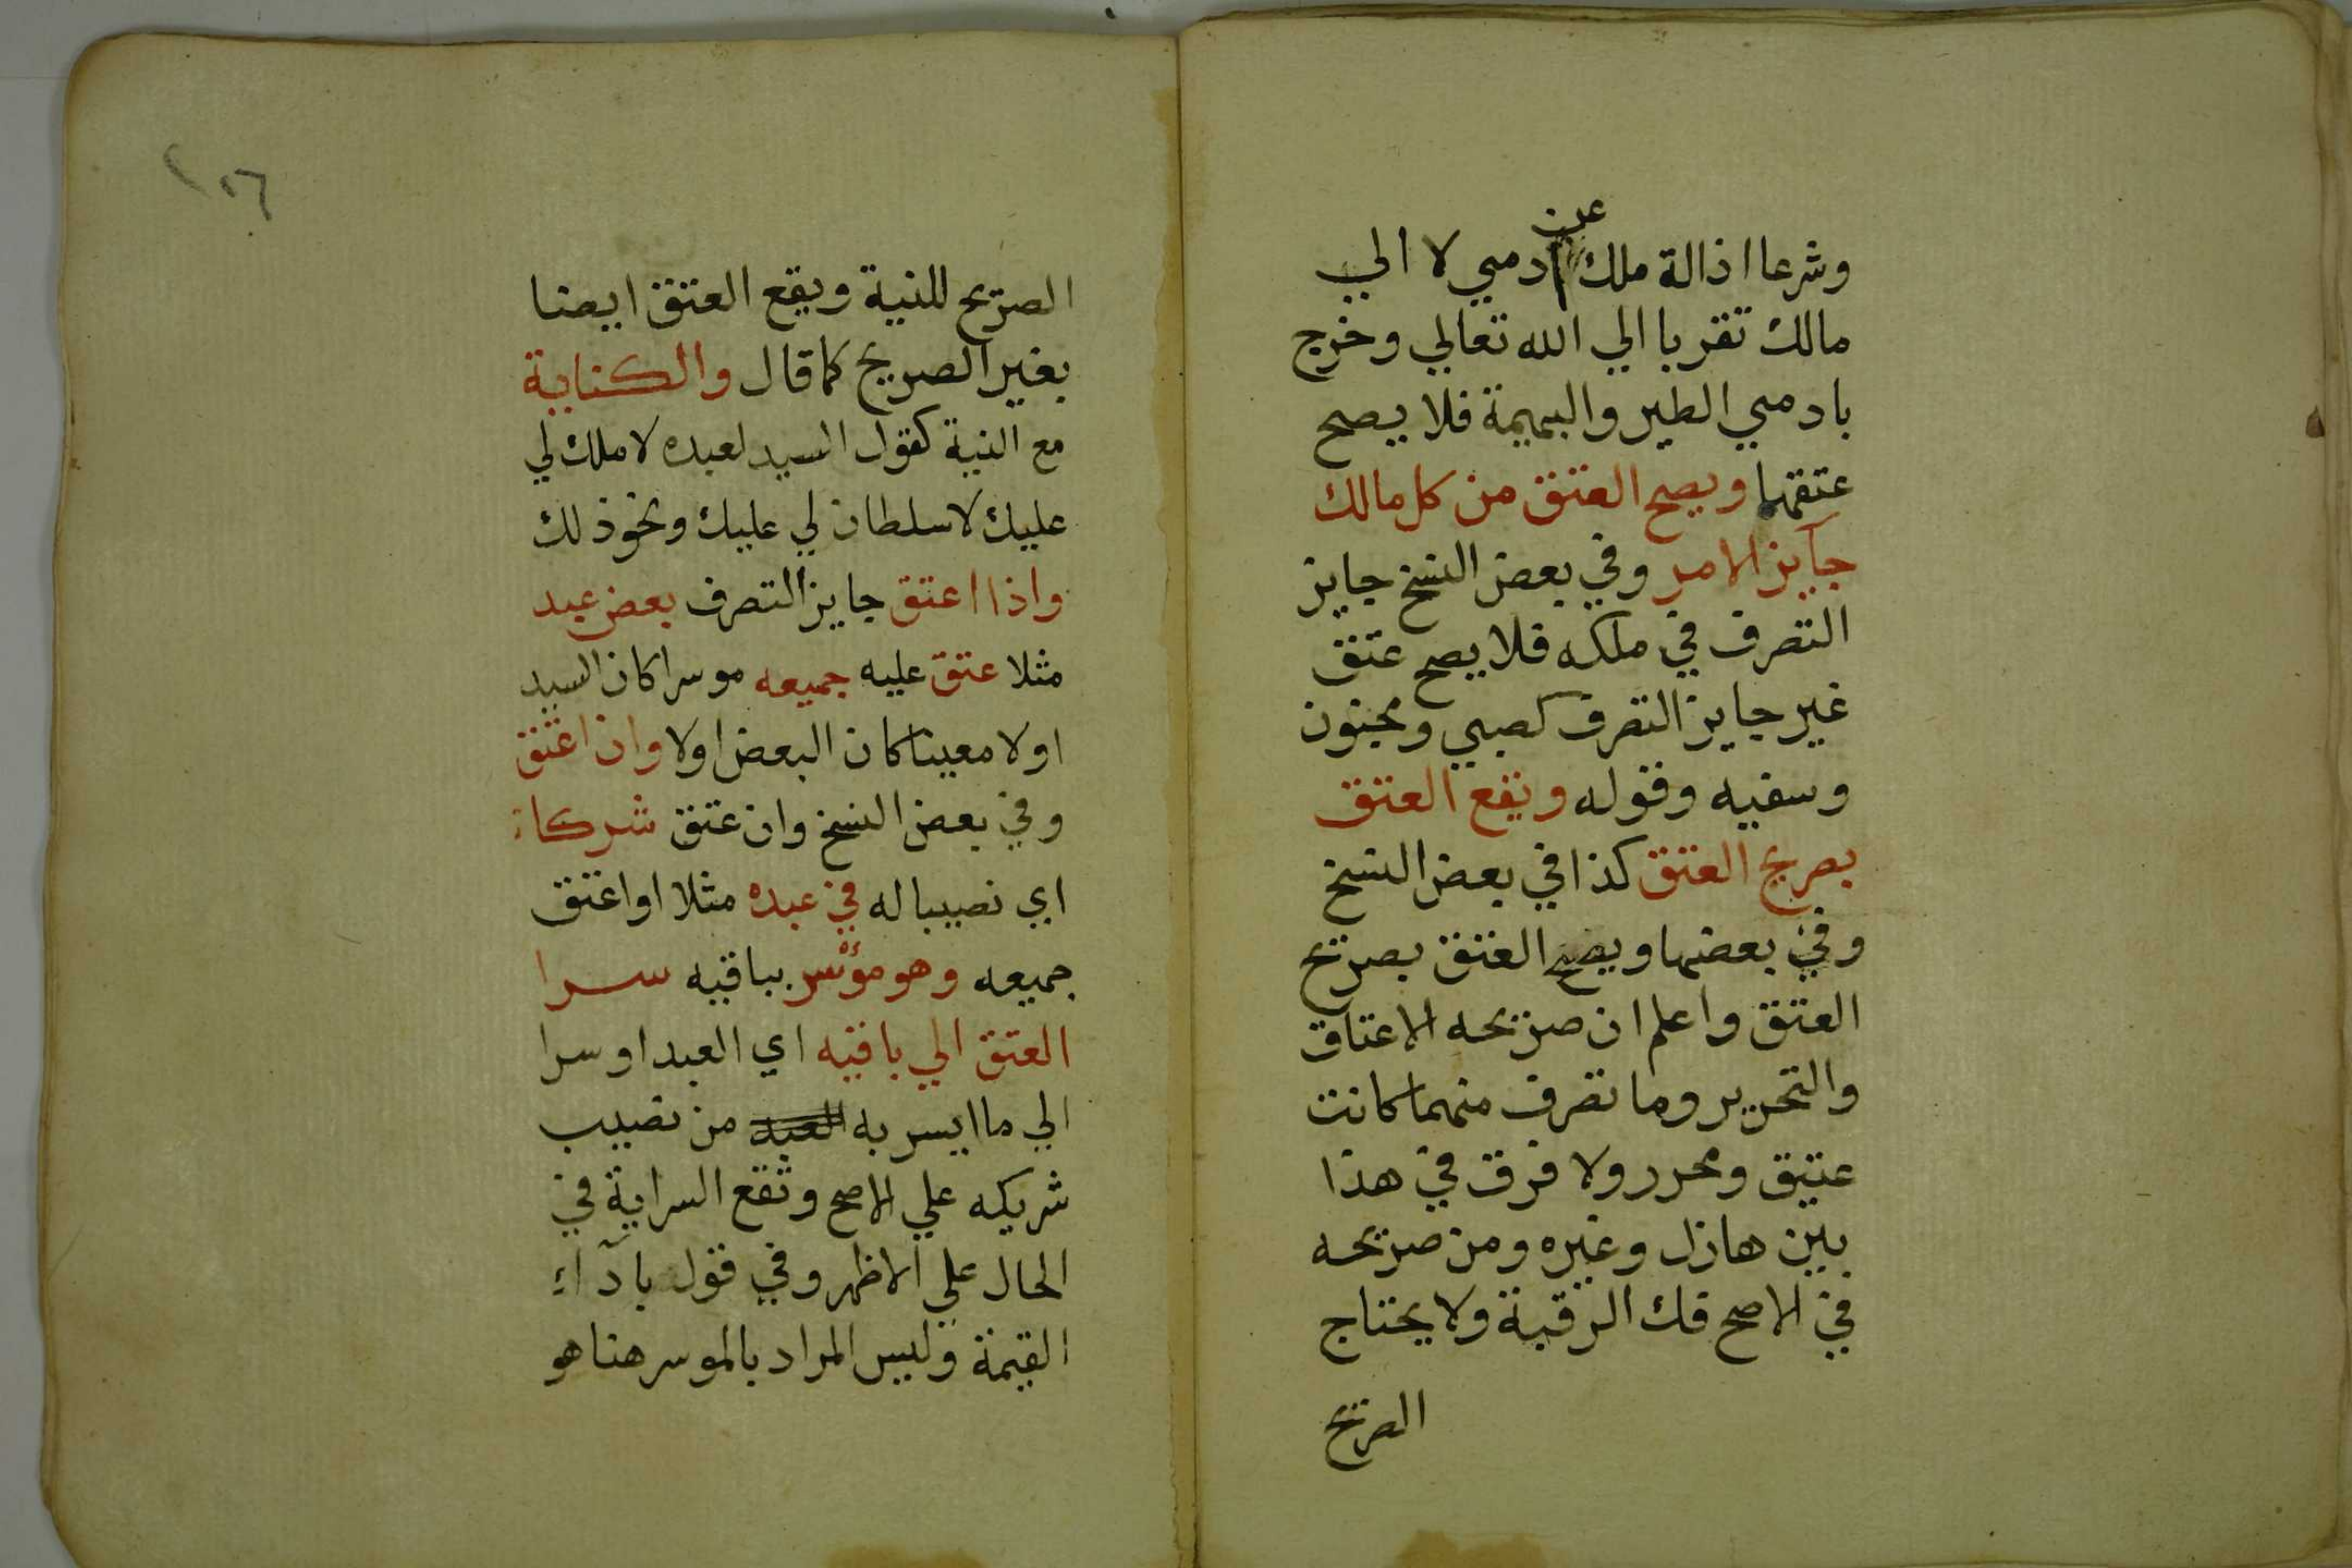 عن
وشرعا اذالة ملك ادمي لا الي
مالك تقربا الي الله تعالي وخرج
بادمي الطير والبهيمة فلا يصح
عتقهما ويصح العتق من كل مالك
جآيز الامر وفي بعض النسخ جايز
التصرف في ملكه فلا يصح عتق
غير جايز التصرف كصبي ومجنون
وسفيه وقوله ويقع العتق
بصريح العتق كذا في بعض النسخ
وفي بعضها ويصح العتق بصريح
العتق واعلم ان صريحه الاعتاق
والتحرير وما تصرف منهما كانت
عتيق ومحرر ولا فرق في هذا
بين هازل وغيره ومن صريحه
في الاصح فك الرقبة ولا يحتاج
الصريح
١٥٦
الصريح للنية ويقع العتق ايضا
بغير الصريح كما قال والكناية
مع النية كقول السيد لعبده لا ملك لي
عليك لا سلطان لي عليك ونحو ذلك
واذا اعتق جايز التصرف بعض عبد
مثلا عتق عليه جميعه موسرا كان السيد
اولا معينا كان البعض اولا وان اعتق
وفي بعض النسخ وان عتق شركاء
اي نصيبا له في عبده مثلا او اعتق
جميعه وهو موسر بباقيه سرا
العتق الي باقيه اي العبد او سرا
الي ما ايسر به العبد من نصيب
شريكه علي الاصح وتقع السراية في
الحال علي الاظهر وفي قول بادآء
القيمة وليس المراد بالموسر هنا هو